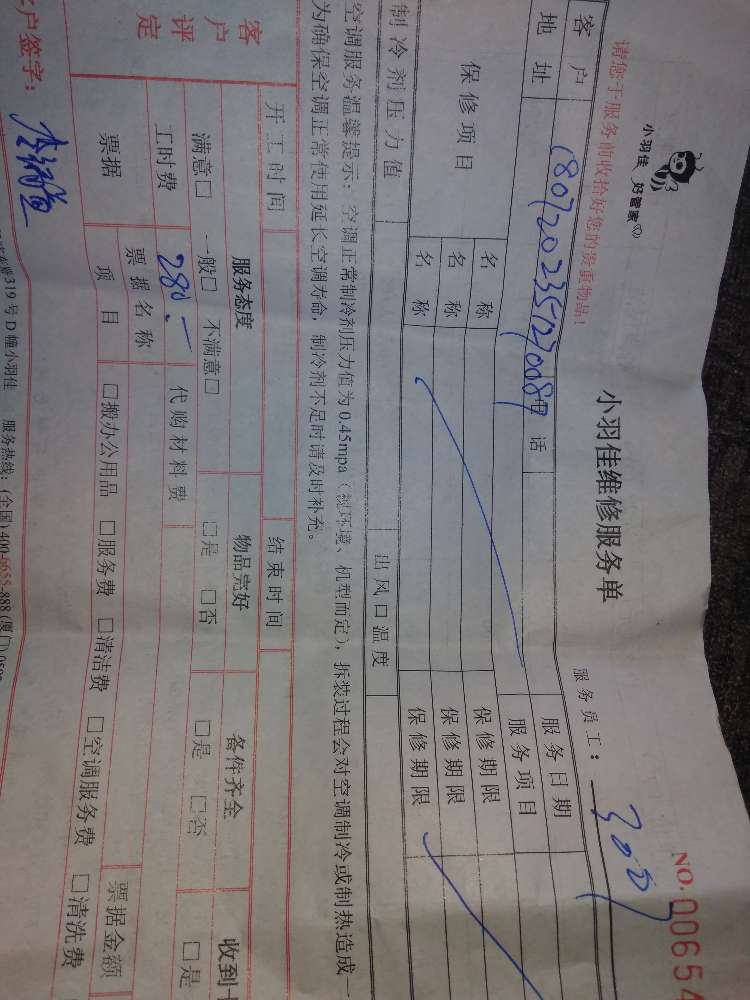 小羽佳 好管家
小羽佳维修服务单
请您于服务前收拾好您的贵重物品！
服务员工：
NO. 0065
客户 服务日期
地址 180720235727008 电话 服务项目
保修项目 名称 保修期限
名称 保修期限
名称 保修期限
制冷剂压力值 出风口温度
空调服务温馨提示：空调正常制冷剂压力值为0.45mpa（视环境、机型而定），拆装过程会对空调制冷或制热造成一
为确保空调正常使用延长空调寿命，制冷剂不足时请及时补充。
开工时间 结束时间
客户评定 服务态度 物品完好 备件齐全 收到
满意□ 一般□ 不满意□ □是 □否 □是 □否 □是
工时费 280.- 代购材料费
票据 票据名称 票据金额
项目 □搬办公用品 □服务费 □清洁费 □空调服务费 □清洗费
户签字：
319号D幢小羽佳 服务热线：(全国)400-6655-888 (厦门)